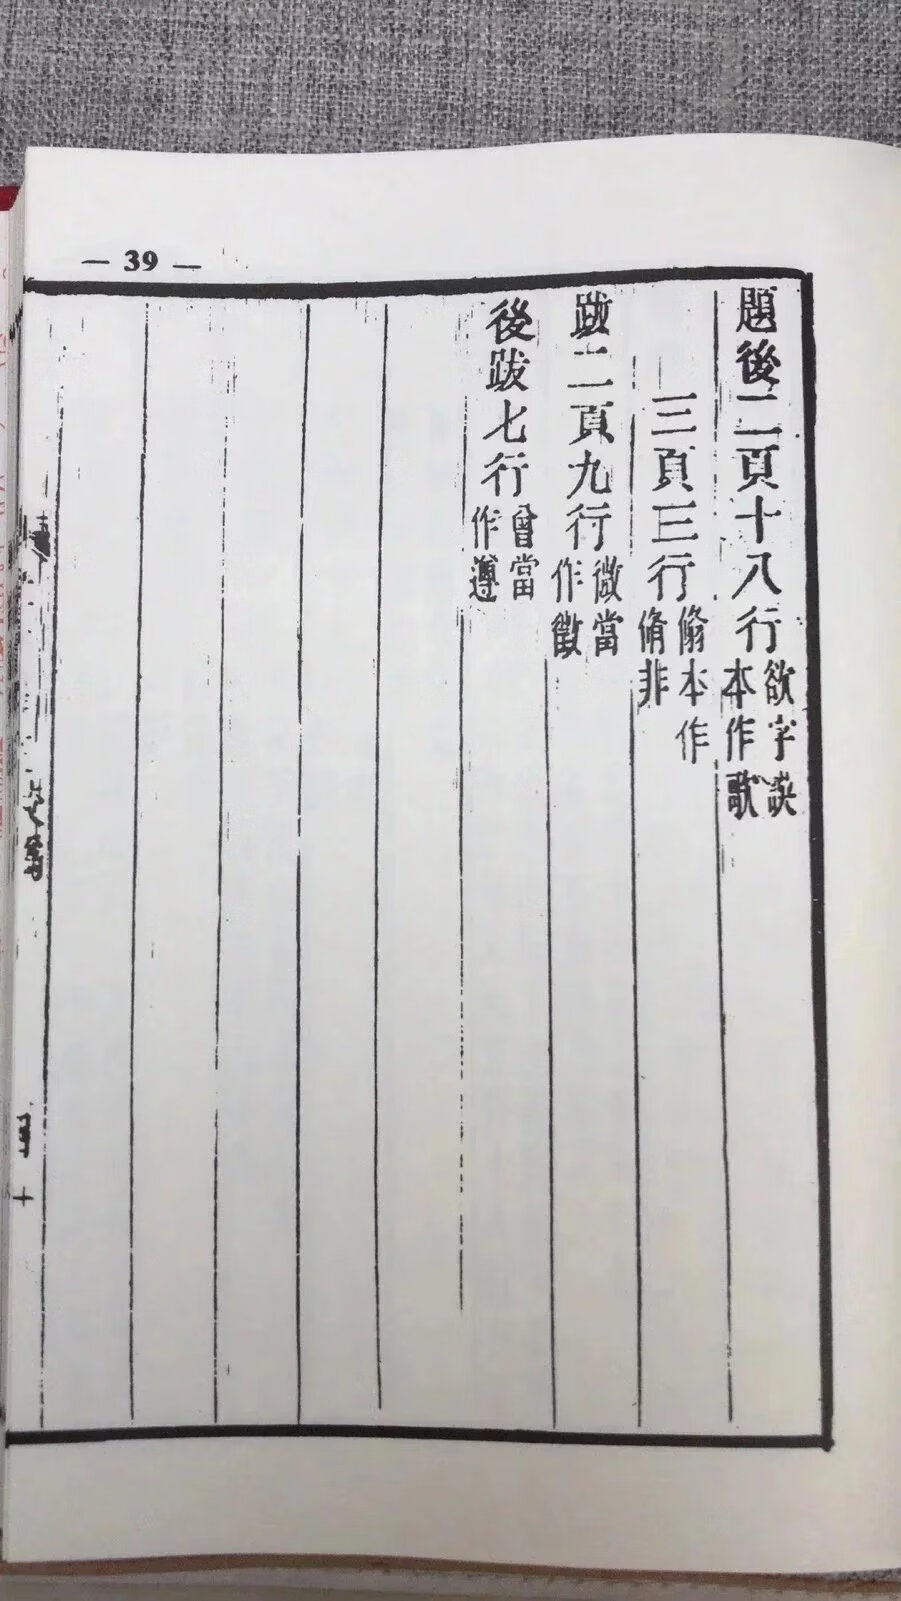 — 39 —
題後二頁十八行欲字誤本作歌
三頁三行脩本作脩非
跋二頁九行微當作徵
後跋七行曾當作遵